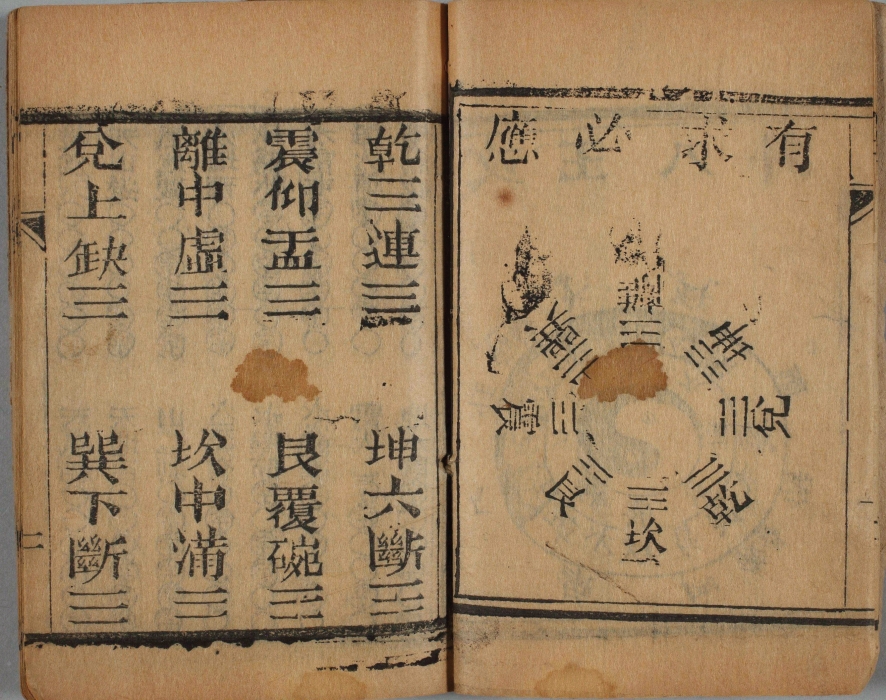 有求必應
離
坤
兌
乾
坎
艮
震
巽
乾三連
坤六斷
震仰盂
艮覆碗
離中虛
坎中滿
兌上缺
巽下斷
二